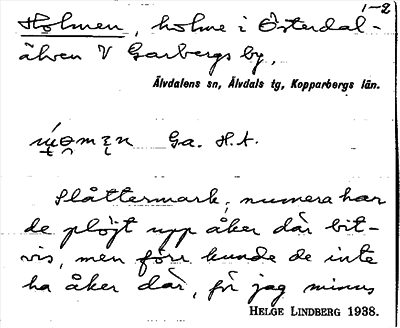 1-2
Holmen, holme i Österdal-
älven V Garbergs by,
Älvdalens sn, Älvdals tg, Kopparbergs län.
Ga. H.A.
Slåttermark, numera har
de plöjt upp åker där bit-
vis, men förr kunde de inte
ha åker där, för jag minns
HELGE LINDBERG 1938.